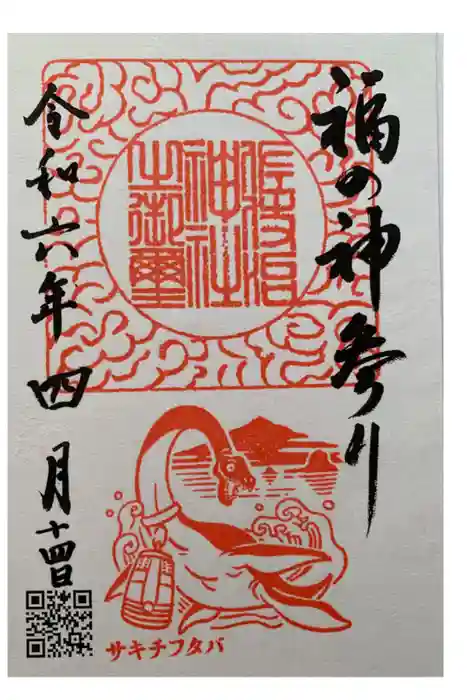 福の神参り
神社
之御璽
令和六年四月十四日
サキチフタバ